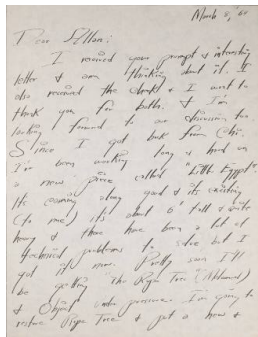 March 8, 60
Dear Allan:
I received your prompt & interesting
letter & am thinking about it. I
also received the check & I want to
thank you for both. & I'm
looking forward to our discussion too.
Since I got back from Chi.
I've been working long & hard on
a new piece called "Little Egypt".
Its coming along good & its exciting
(to me) it's about 6' tall & quite
heavy & there have been a lot of
technical problems to solve but I
got it now. Pretty soon I'll
be getting "The Rope Tree (Mohamed)
& Object under pressure. I'm going to
restore Rope Tree & put a new &